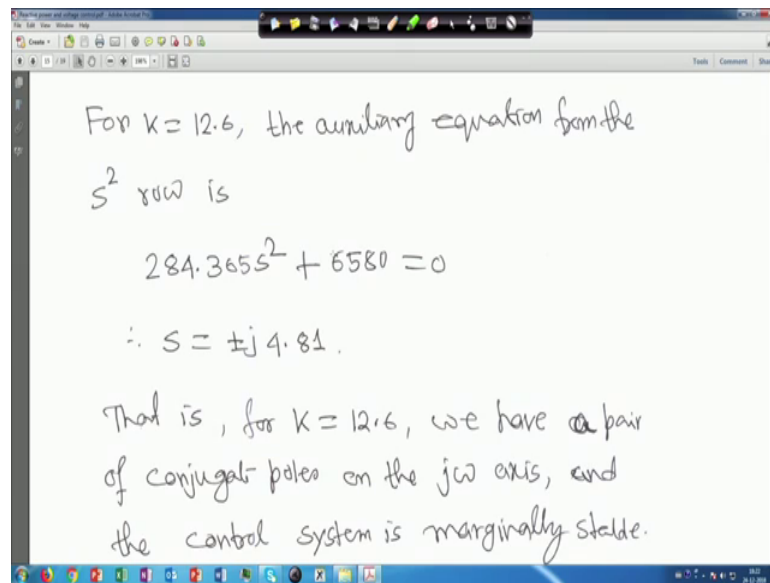 Reactive power and voltage control.pdf - Adobe Acrobat Pro
File Edit View Window Help
Create
Tools Comment
For K = 12.6, the auxiliary equation from the
s² row is
284.365s² + 6580 = 0
∴ s = ±j 4.81.
That is, for K = 12.6, we have a pair
of conjugate poles on the jω axis, and
the control system is marginally stable.